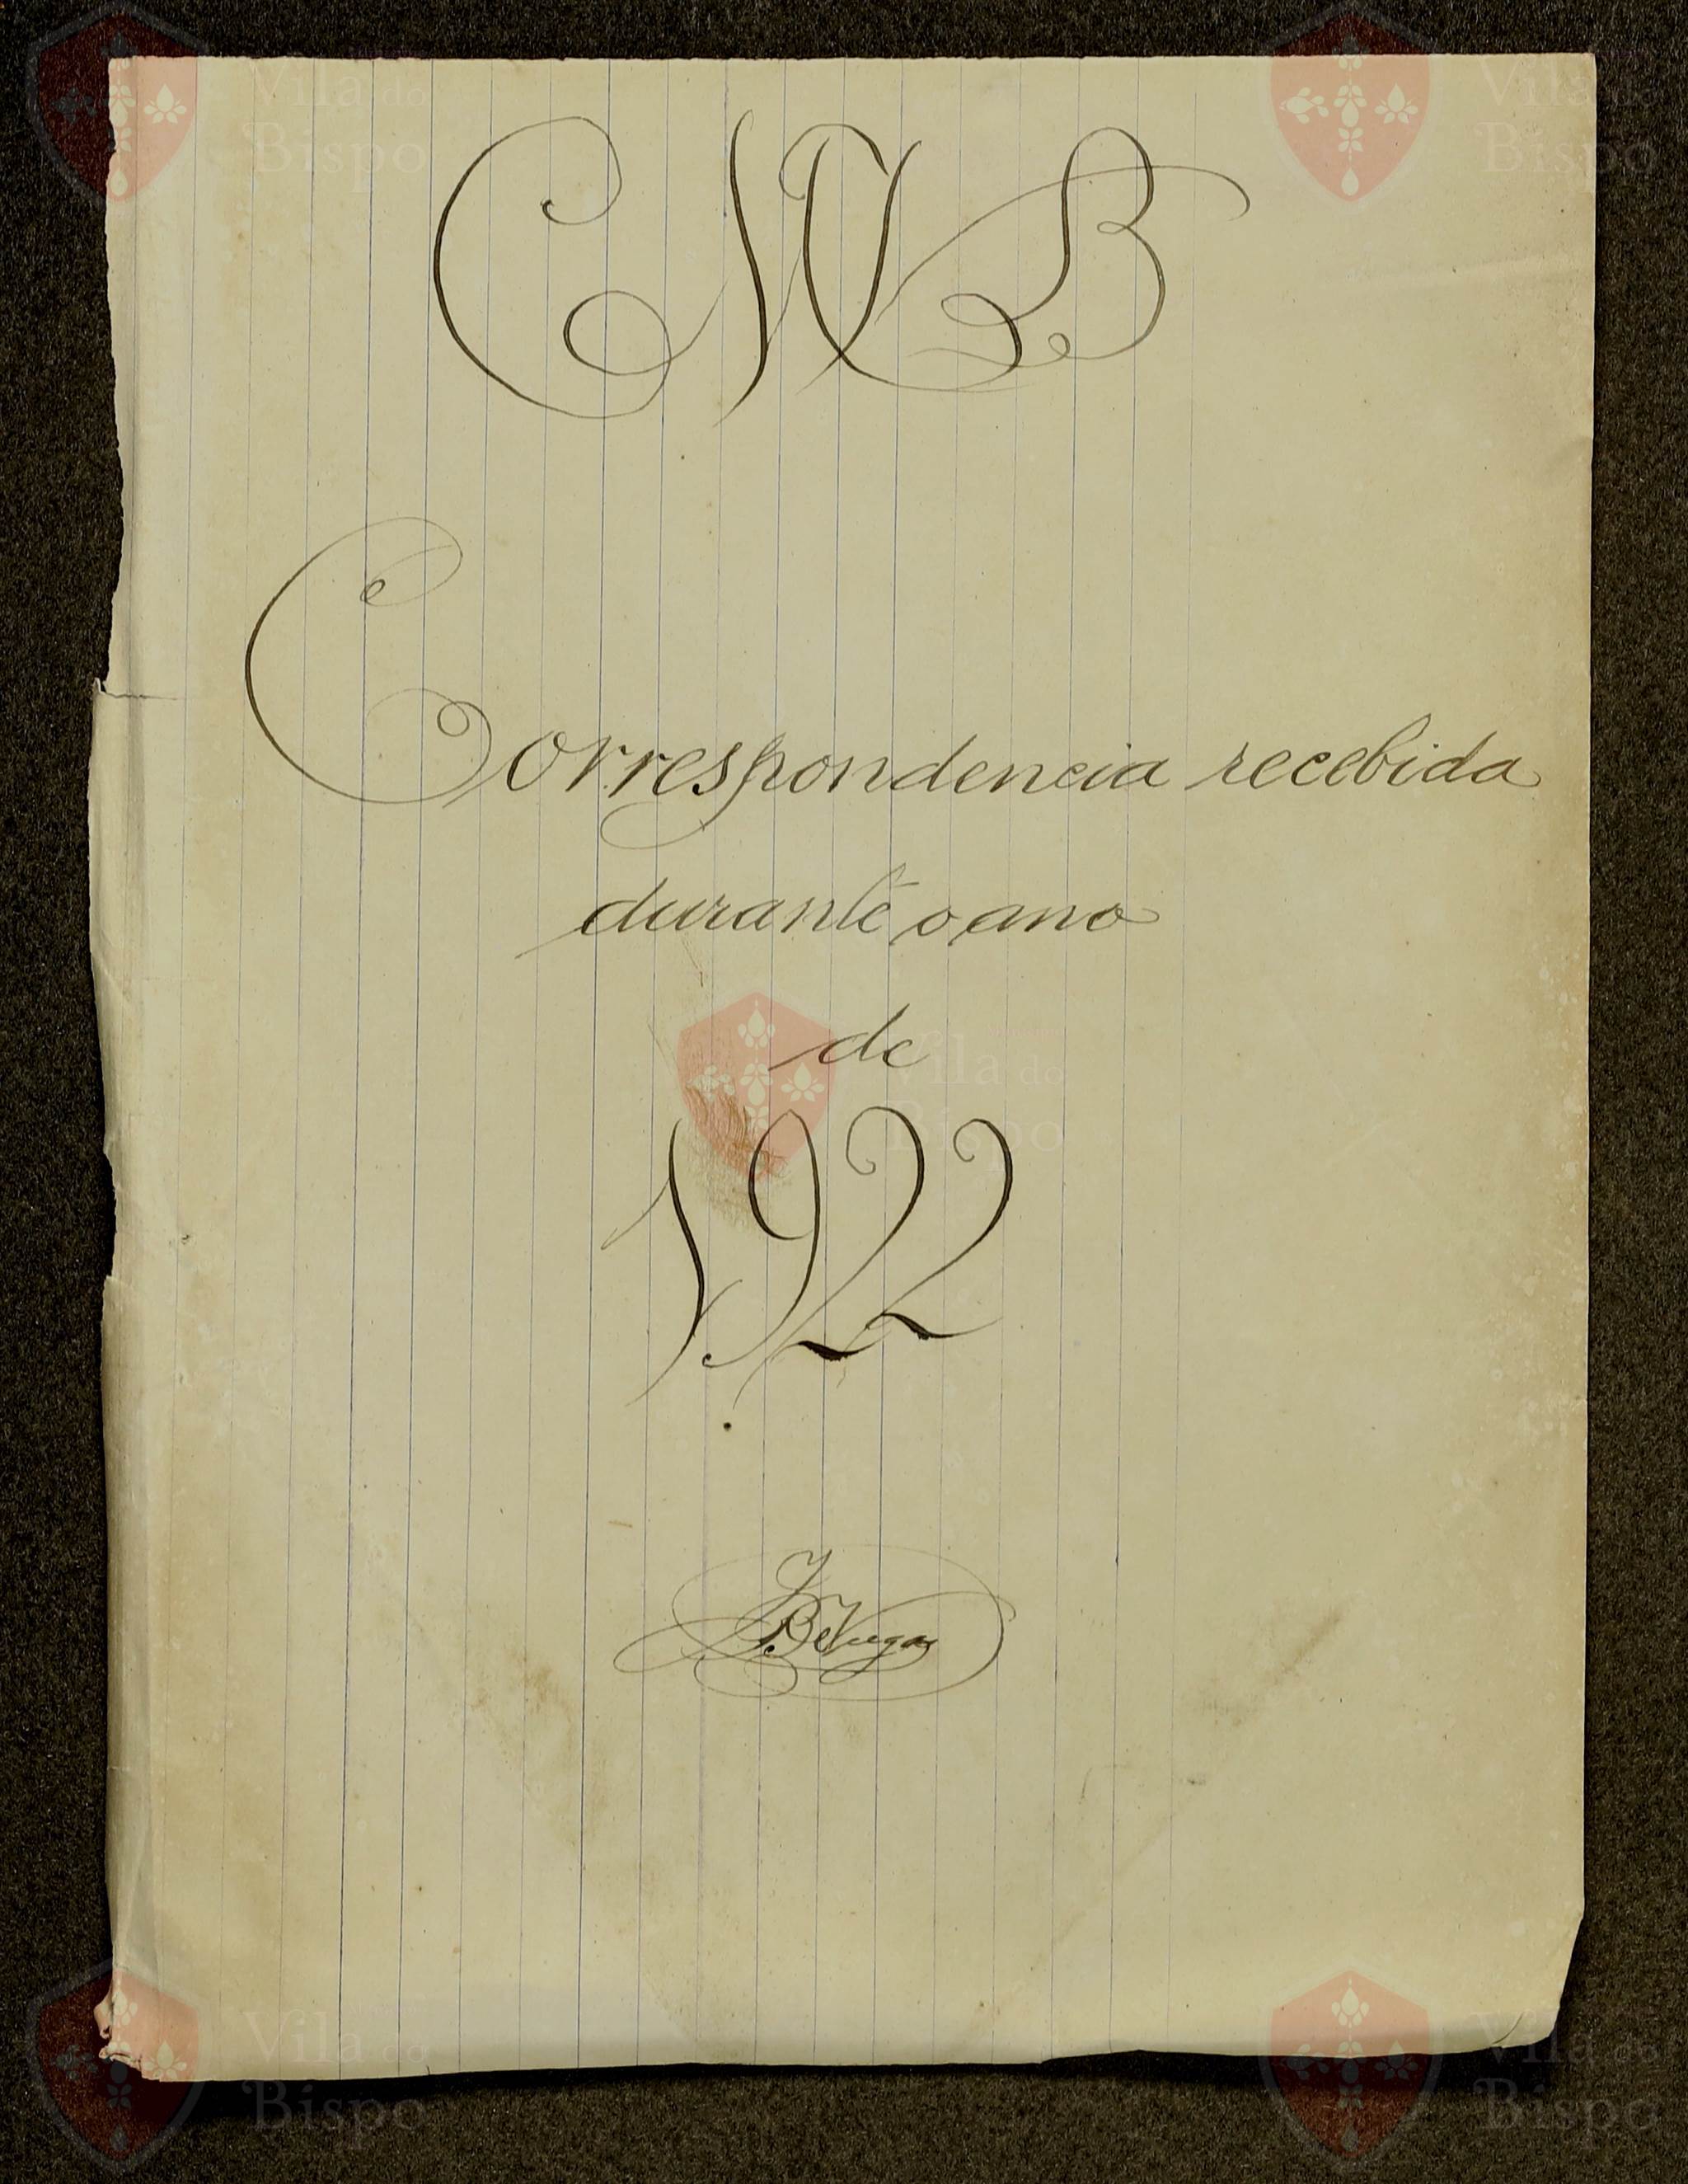 CMVB
Correspondencia recebida
durante o ano
de
1922
Vila do
Bispo
Vila do
Bispo
Vila do
Bispo
Vila do
Bispo
Vila do
Bispo